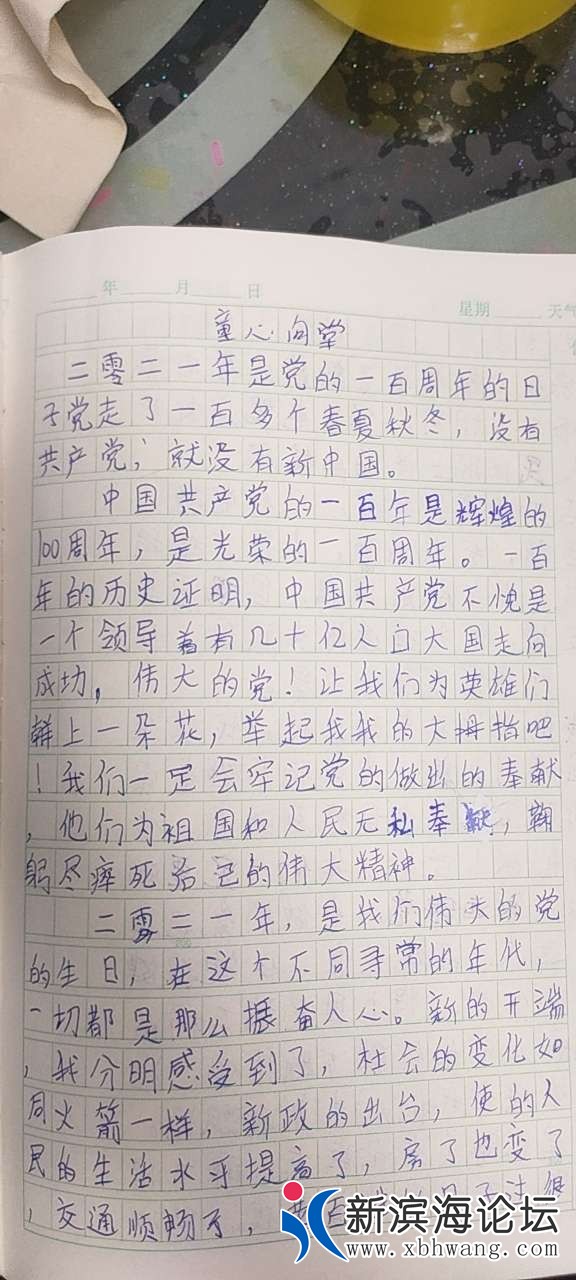 年 月 日 星期 天气
童心向堂
二零二一年是党的一百周年的日
子党走了一百多个春夏秋冬，没有
共产党，就没有新中国。
中国共产党的一百年是辉煌的
100周年，是光荣的一百周年。一百
年的历史证明，中国共产党不愧是
一个领导着有几十亿人口大国走向
成功，伟大的党！让我们为英雄们
献上一朵花，举起我我的大拇指吧
！我们一定会牢记党的做出的奉献
，他们为祖国和人民无私奉献，鞠
躬尽瘁死后已的伟大精神。
二零二一年，是我们伟大的党
的生日，在这个不同寻常的年代，
一切都是那么振奋人心。新的开端
，我分明感受到了，社会的变化如
同火箭一样，新政的出台，使的人
民的生活水平提高了，房了也变了
，交通顺畅了，
新滨海论坛
www.xbhwang.com